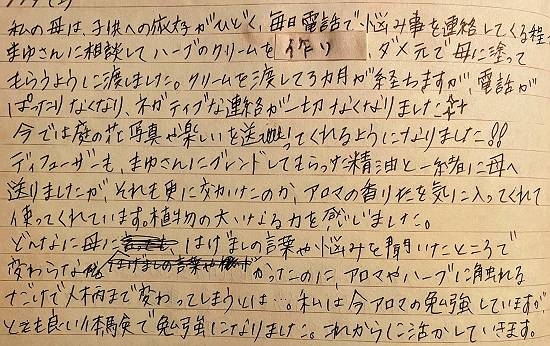 私の母は、子供への依存がひどく、毎日電話で悩み事を連絡してくる程
まゆさんに相談してハーブのクリームを作り、ダメ元で母に塗って
もらうように渡しました。クリームを渡して3カ月が経ちますが、電話が
ぱったりなくなり、ネガティブな連絡が一切なくなりました
今では庭の花写真や楽しいを送ってくれるようになりました!!
ディフューザーも、まゆさんにブレンドしてもらった精油と一緒に母へ
送りましたが、それも更に効いたのか、アロマの香りを気に入ってくれて
使ってくれています。植物の大いなる力を感じました。
どんなに母にはげましの言葉や悩みを聞いたところで
変わらなかったのに、アロマやハーブに触れる
だけで人柄まで変わってしまうとは…。私は今アロマの勉強していますが
とても良い体験で勉強になりました。これからに活かしていきます。